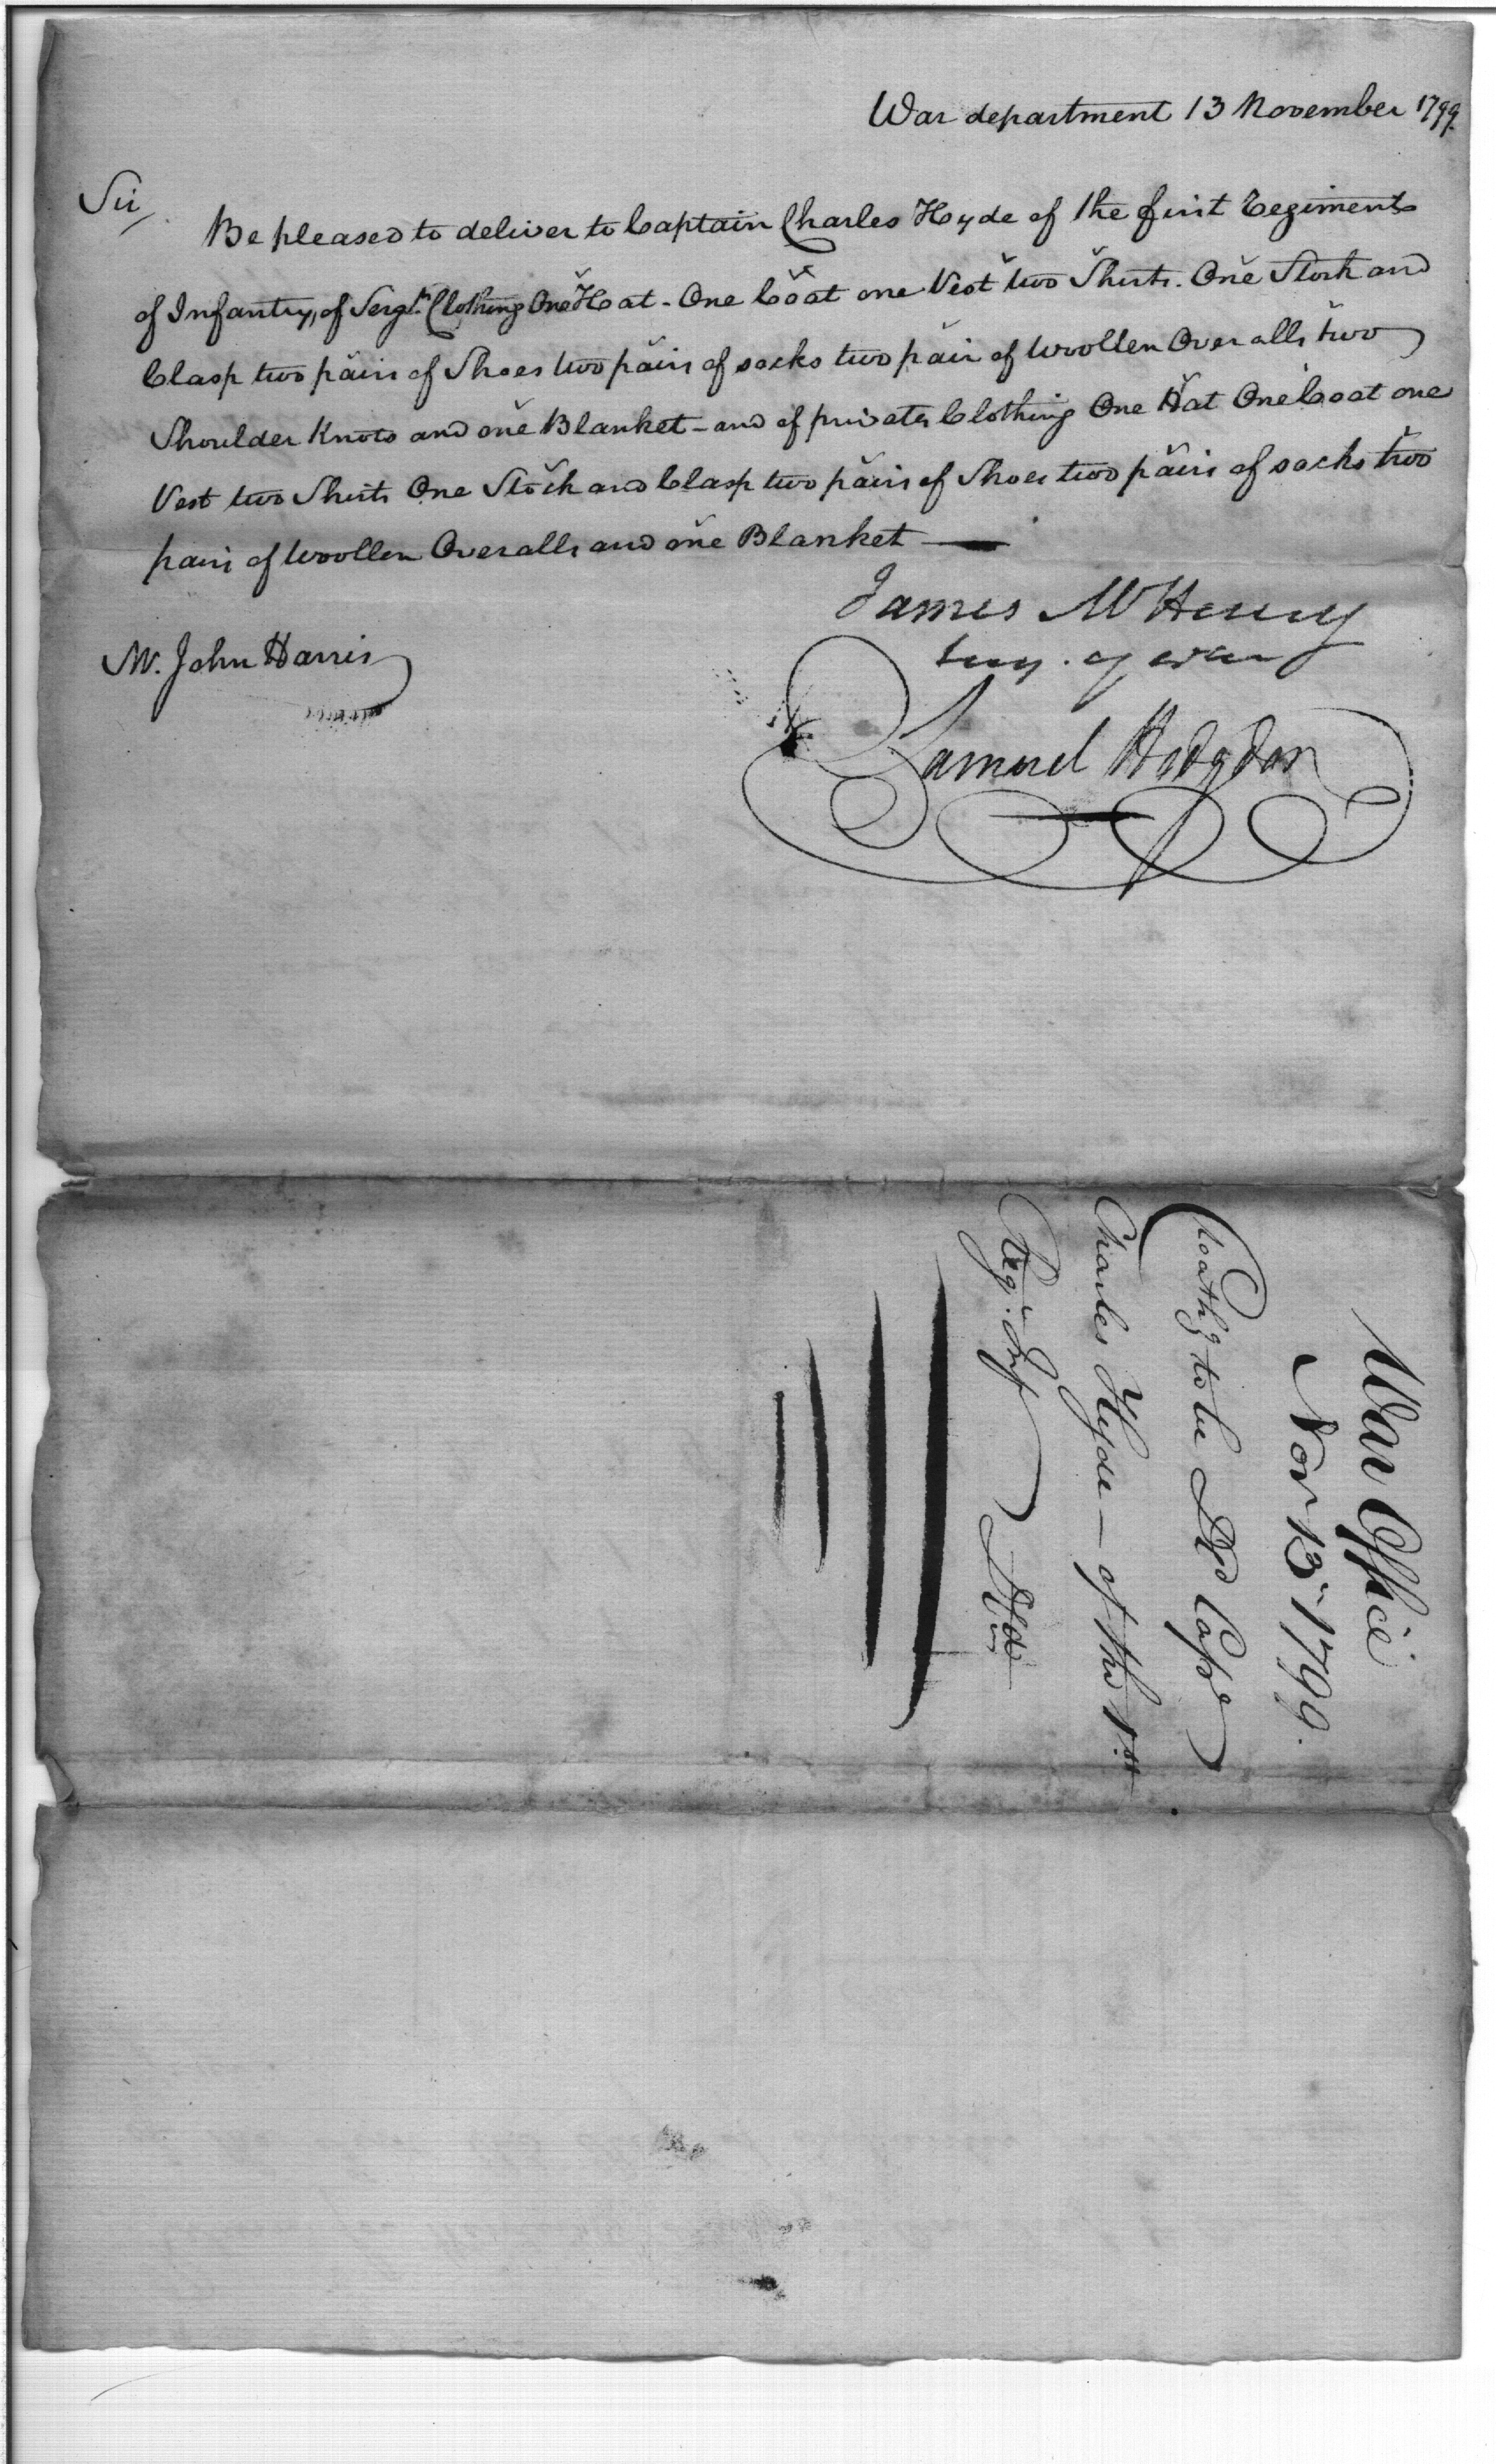 War department 13 November 1799.
Sir,
Be pleased to deliver to Captain Charles Hyde of the first Regiment
of Infantry, of Sergts. Clothing One Hat - One Coat one Vest two Shirts. One Stock and
Clasp two pairs of Shoes two pairs of socks two pair of Woollen Overalls two
Shoulder Knots and one Blanket - and of privates Clothing One Hat One Coat one
Vest two Shirts One Stock and Clasp two pairs of Shoes two pairs of socks two
pairs of Woollen Overalls and one Blanket —
James McHenry
Secy. of war
Mr. John Harris
Samuel Hodgdon
War Office
Nov 13th 1799.
Cloathg to be Dd Capt
Charles Hyde — of the 1st
Regt. Inf